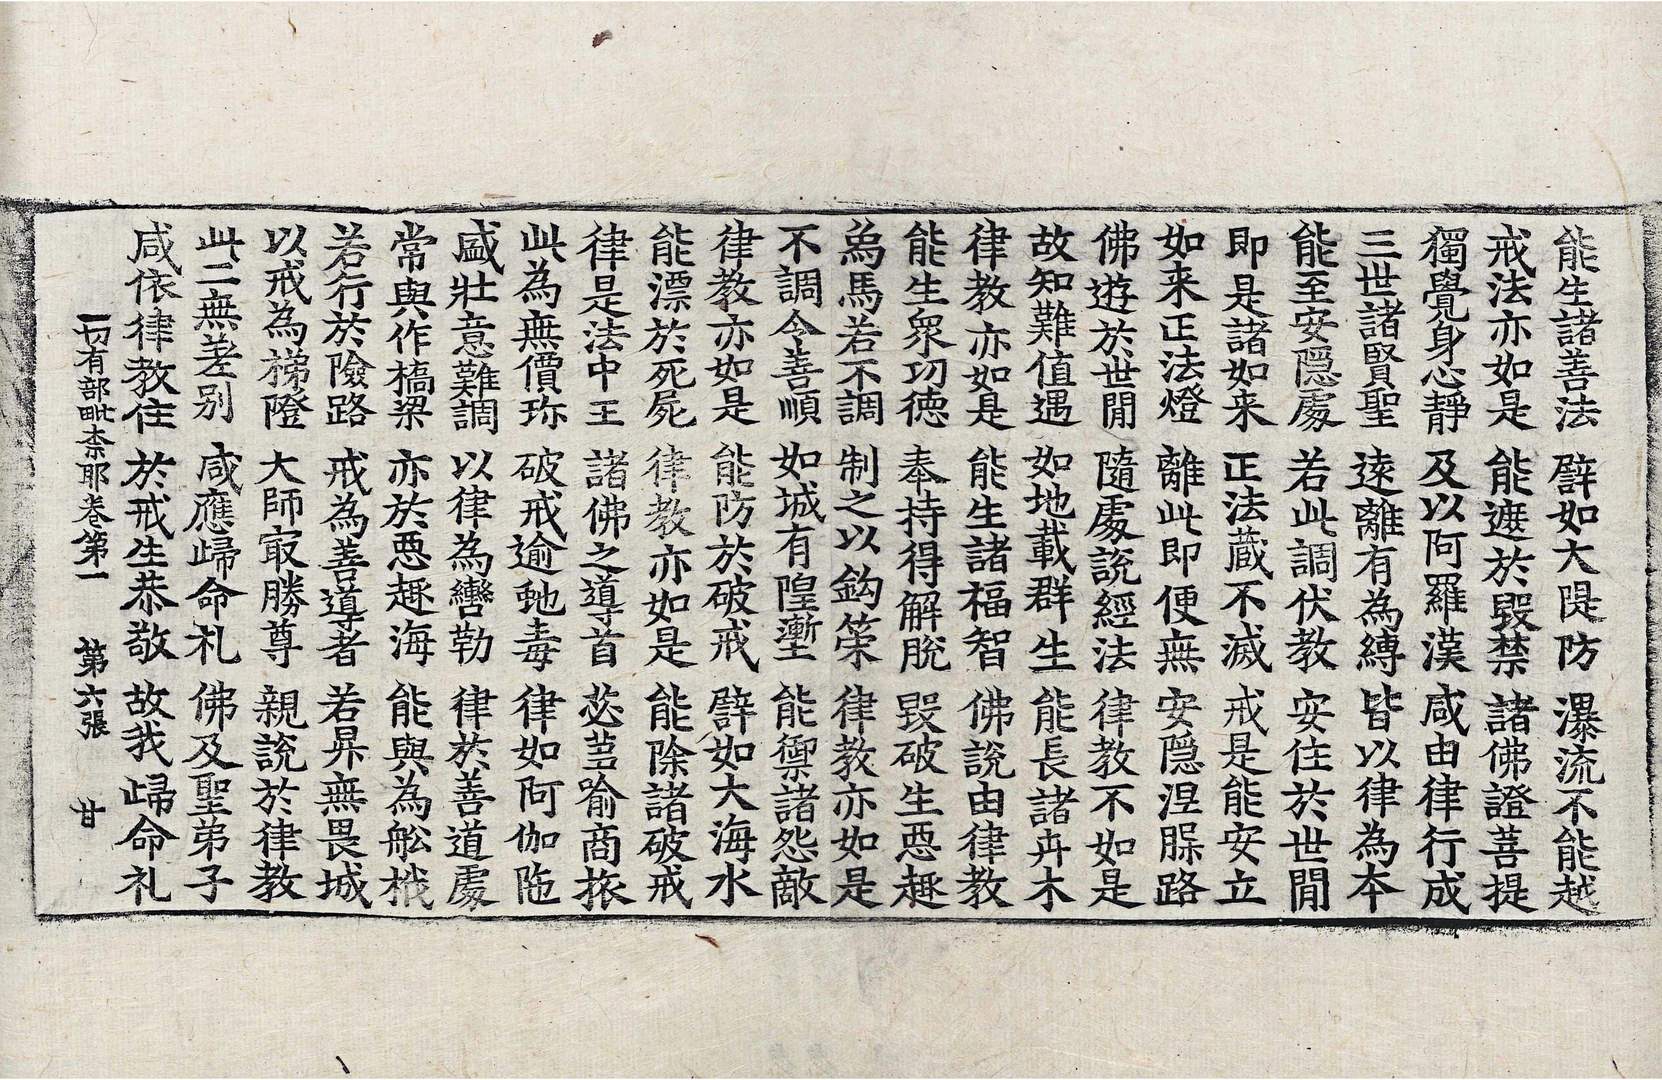 能生諸善法 譬如大隄防 瀑流不能越
戒法亦如是 能遮於毀禁 諸佛證菩提
獨覺身心靜 及以阿羅漢 咸由律行成
三世諸賢聖 遠離有為縛 皆以律為本
能至安隱處 若此調伏教 安住於世間
即是諸如来 正法蔵不滅 戒是能安立
如来正法燈 離此即便無 安隱涅槃路
佛遊於世間 隨處說經法 律教不如是
故知難值遇 如地載群生 能長諸卉木
律教亦如是 能生諸福智 佛說由律教
能生衆功德 奉持得解脫 毀破生惡趣
象馬若不調 制之以鈎策 律教亦如是
不調令善順 如城有隍塹 能禦諸怨敵
律教亦如是 能防於破戒 譬如大海水
能漂於死屍 律教亦如是 能除諸破戒
律是法中王 諸佛之導首 苾芻喻商旅
此為無價珎 破戒逾虵毒 律如阿伽陁
盛壯意難調 以律為轡勒 律於善道處
常與作橋梁 亦於惡趣海 能與為舩栰
若行於險路 戒為善導者 若昇無畏城
以戒為梯隥 大師㝡勝尊 親說於律教
此二無差別 咸應歸命礼 佛及聖弟子
咸依律教住 於戒生恭敬 故我歸命礼
一切有部毗柰耶卷第一 第六張 甘